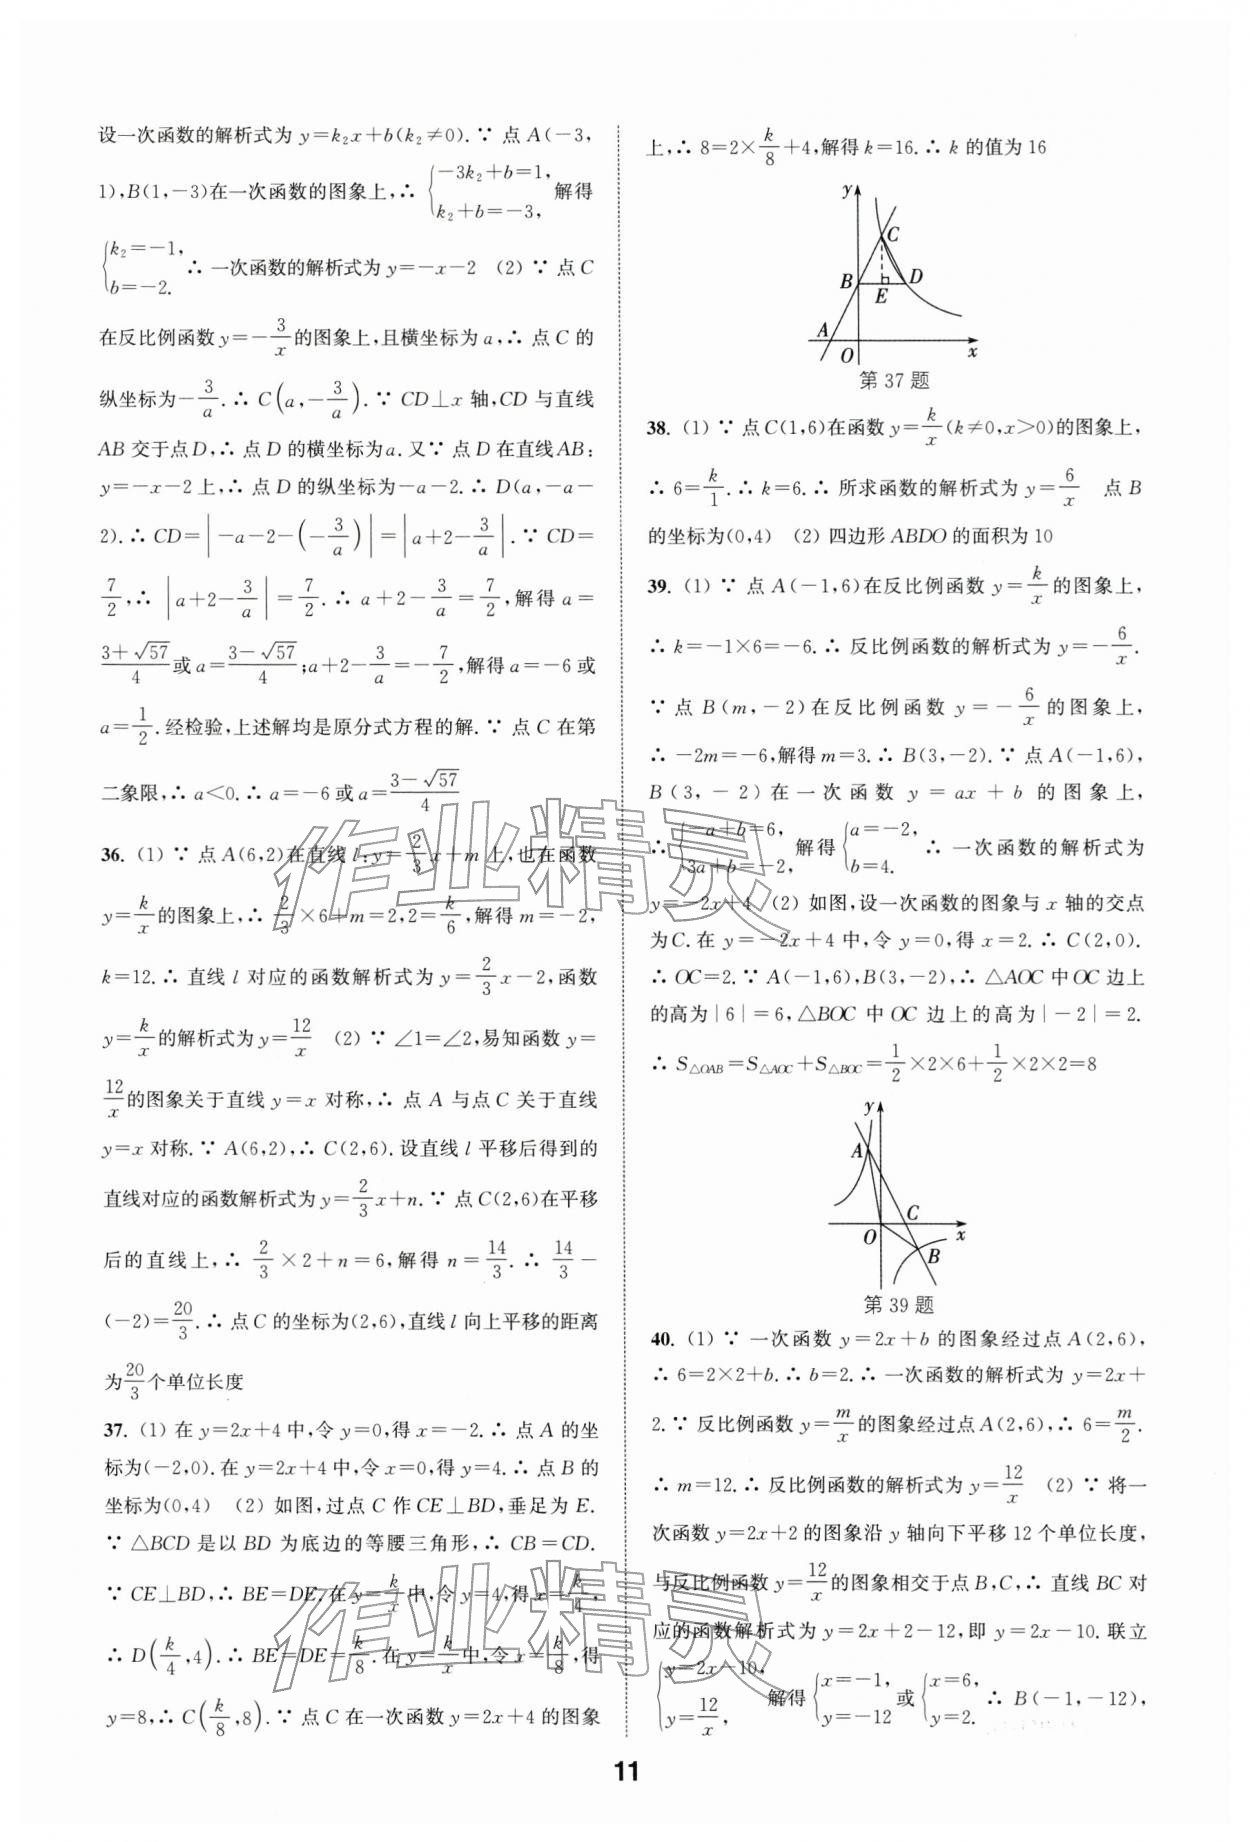 设一次函数的解析式为 y=k₂x+b(k₂≠0).∵ 点 A(-3,
1),B(1,-3)在一次函数的图象上,∴ {-3k₂+b=1, k₂+b=-3, 解得
{k₂=-1, b=-2. ∴ 一次函数的解析式为 y=-x-2 (2) ∵ 点 C
在反比例函数 y=-3/x 的图象上,且横坐标为 a,∴ 点 C 的
纵坐标为-3/a.∴ C(a,-3/a).∵ CD⊥x 轴,CD 与直线
AB 交于点 D,∴ 点 D 的横坐标为a.又∵ 点 D 在直线AB:
y=-x-2 上,∴ 点 D 的纵坐标为-a-2.∴ D(a,-a-
2).∴ CD=|-a-2-(-3/a)|=|a+2-3/a|.∵ CD=
7/2,∴ |a+2-3/a|=7/2.∴ a+2-3/a=7/2,解得 a=
(3+√57)/4或 a=(3-√57)/4;a+2-3/a=-7/2,解得 a=-6 或
a=1/2.经检验,上述解均是原分式方程的解.∵ 点 C 在第
二象限,∴ a<0.∴ a=-6 或 a=(3-√57)/4
36. (1) ∵ 点 A(6,2)在直线 l:y=2/3x+m 上,也在函数
y=k/x的图象上,∴ 2/3×6+m=2,2=k/6,解得 m=-2,
k=12.∴ 直线 l 对应的函数解析式为 y=2/3x-2,函数
y=k/x的解析式为 y=12/x (2) ∵ ∠1=∠2,易知函数 y=
12/x的图象关于直线 y=x 对称,∴ 点 A 与点 C 关于直线
y=x 对称.∵ A(6,2),∴ C(2,6).设直线 l 平移后得到的
直线对应的函数解析式为 y=2/3x+n.∵ 点 C(2,6)在平移
后的直线上,∴ 2/3×2+n=6,解得 n=14/3.∴ 14/3-
(-2)=20/3.∴ 点 C 的坐标为(2,6),直线 l 向上平移的距离
为20/3个单位长度
37. (1) 在 y=2x+4 中,令 y=0,得 x=-2.∴ 点 A 的坐
标为(-2,0).在 y=2x+4 中,令 x=0,得 y=4.∴ 点 B 的
坐标为(0,4) (2) 如图,过点 C 作 CE⊥BD,垂足为 E.
∵ △BCD 是以 BD 为底边的等腰三角形,∴ CB=CD.
∵ CE⊥BD,∴ BE=DE.在 y=k/x中,令 y=4,得 x=k/4.
∴ D(k/4,4).∴ BE=DE=k/8.在 y=k/x中,令 x=k/8,得
y=8,∴ C(k/8,8).∵ 点 C 在一次函数 y=2x+4 的图象
上,∴ 8=2×k/8+4,解得 k=16.∴ k 的值为 16
y
C
B
E
D
A
O
x
第 37 题
38. (1) ∵ 点 C(1,6)在函数 y=k/x(k≠0,x>0)的图象上,
∴ 6=k/1.∴ k=6.∴ 所求函数的解析式为 y=6/x 点 B
的坐标为(0,4) (2) 四边形 ABDO 的面积为 10
39. (1) ∵ 点 A(-1,6)在反比例函数 y=k/x的图象上,
∴ k=-1×6=-6.∴ 反比例函数的解析式为 y=-6/x.
∵ 点 B(m,-2)在反比例函数 y=-6/x的图象上,
∴ -2m=-6,解得 m=3.∴ B(3,-2).∵ 点 A(-1,6),
B(3,-2)在一次函数 y=ax+b 的图象上,
∴ {-a+b=6, 3a+b=-2, 解得 {a=-2, b=4. ∴ 一次函数的解析式为
y=-2x+4 (2) 如图,设一次函数的图象与 x 轴的交点
为C.在 y=-2x+4 中,令 y=0,得 x=2.∴ C(2,0).
∴ OC=2.∵ A(-1,6),B(3,-2),∴ △AOC 中 OC 边上
的高为|6|=6,△BOC 中 OC 边上的高为|-2|=2.
∴ S△OAB=S△AOC+S△BOC=1/2×2×6+1/2×2×2=8
y
A
C
O
x
B
第 39 题
40. (1) ∵ 一次函数 y=2x+b 的图象经过点 A(2,6),
∴ 6=2×2+b.∴ b=2.∴ 一次函数的解析式为 y=2x+
2.∵ 反比例函数 y=m/x的图象经过点 A(2,6),∴ 6=m/2.
∴ m=12.∴ 反比例函数的解析式为 y=12/x (2) ∵ 将一
次函数 y=2x+2 的图象沿 y 轴向下平移 12 个单位长度,
与反比例函数 y=12/x的图象相交于点 B,C,∴ 直线 BC 对
应的函数解析式为 y=2x+2-12,即 y=2x-10.联立
{y=2x-10, y=12/x, 解得 {x=-1, y=-12 或 {x=6, y=2. ∴ B(-1,-12),
11
作业精灵
作业精灵